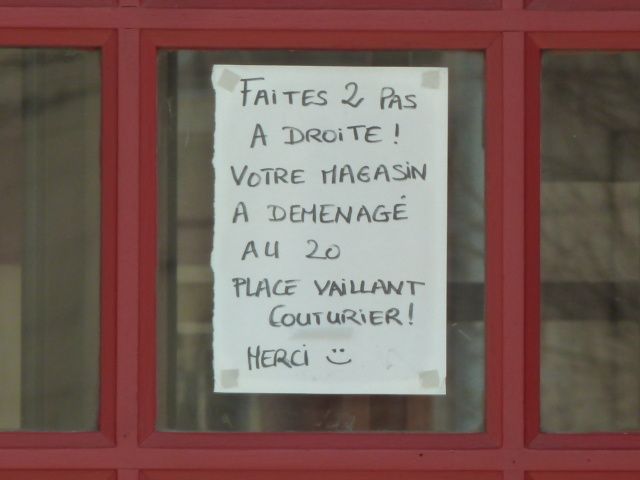 FAITES 2 PAS
A DROITE !
VOTRE MAGASIN
A DEMENAGÉ
AU 20
PLACE VAILLANT
COUTURIER !
MERCI :)